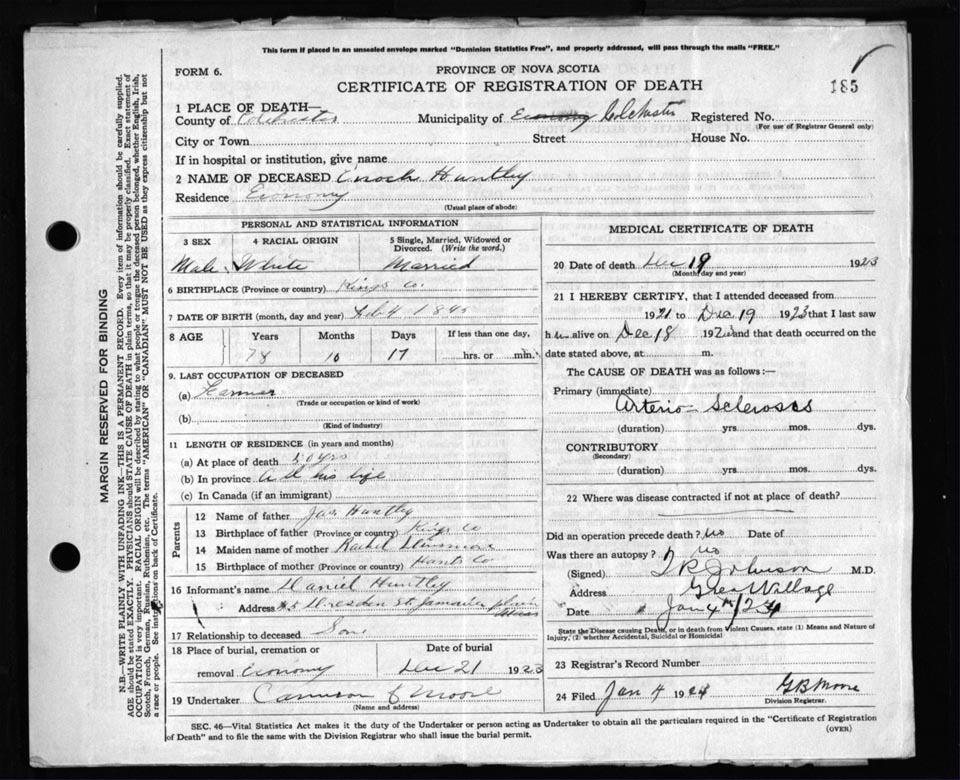 This form if placed in an unsealed envelope marked "Dominion Statistics Free", and properly addressed, will pass through the mails "FREE."
FORM 6.
PROVINCE OF NOVA SCOTIA
CERTIFICATE OF REGISTRATION OF DEATH
185
1 PLACE OF DEATH—
County of Colchester Municipality of Economy Colchester Registered No.
(For use of Registrar General only)
City or Town Street House No.
If in hospital or institution, give name
2 NAME OF DECEASED Enoch Huntley
Residence Economy
(Usual place of abode)
MARGIN RESERVED FOR BINDING
N.B.—WRITE PLAINLY WITH UNFADING INK—THIS IS A PERMANENT RECORD. Every item of information should be carefully supplied.
AGE should be stated EXACTLY. PHYSICIANS should STATE CAUSE OF DEATH in plain terms, so that it may be properly classified. Exact statement of
OCCUPATION is very important. RACIAL ORIGIN will be described by stating to what people or tongue the deceased person belonged, whether English, Irish,
Scotch, French, German, Russian, Ruthenian, etc. The terms "AMERICAN" OR "CANADIAN" MUST NOT BE USED as they express citizenship but not
a race or people. See instructions on back of Certificate.
PERSONAL AND STATISTICAL INFORMATION
3 SEX 4 RACIAL ORIGIN 5 Single, Married, Widowed or
Divorced. (Write the word.)
Male White Married
6 BIRTHPLACE (Province or country) Kings Co.
7 DATE OF BIRTH (month, day and year) Feb 4 1845
8 AGE Years Months Days If less than one day,
78 10 17 hrs. or min.
9. LAST OCCUPATION OF DECEASED
(a) Farmer
(Trade or occupation or kind of work)
(b)
(Kind of industry)
11 LENGTH OF RESIDENCE (in years and months)
(a) At place of death 50 yrs
(b) In province all his life
(c) In Canada (if an immigrant)
Parents
12 Name of father Jas Huntley
13 Birthplace of father (Province or country) Kings Co
14 Maiden name of mother Rachel
15 Birthplace of mother (Province or country) Hants Co
16 Informant's name Daniel Huntley
Address 85 Dresden St Jamaica Plain
Mass
17 Relationship to deceased Son
18 Place of burial, cremation or Date of burial
removal Economy Dec 21 1923
19 Undertaker Cameron & Moore
(Name and address)
MEDICAL CERTIFICATE OF DEATH
20 Date of death Dec 19 1923
(Month, day and year)
21 I HEREBY CERTIFY, that I attended deceased from
1921 to Dec 19 1923 that I last saw
him alive on Dec 18 1923 and that death occurred on the
date stated above, at m.
The CAUSE OF DEATH was as follows:—
Primary (immediate)
Arterio-Scleroses
(duration) yrs. mos. dys.
CONTRIBUTORY
(Secondary)
(duration) yrs. mos. dys.
22 Where was disease contracted if not at place of death?
Did an operation precede death? No Date of
Was there an autopsy? No
(Signed) T R Johnson M.D.
Address Great Village
Date Jan 4th / 24
State the Disease causing Death, or in death from Violent Causes, state (1) Means and Nature of
Injury, (2) whether Accidental, Suicidal or Homicidal
23 Registrar's Record Number
24 Filed Jan 4 1924 G B Moore
Division Registrar.
SEC. 46—Vital Statistics Act makes it the duty of the Undertaker or person acting as Undertaker to obtain all the particulars required in the "Certificate of Registration
of Death" and to file the same with the Division Registrar who shall issue the burial permit. (OVER)